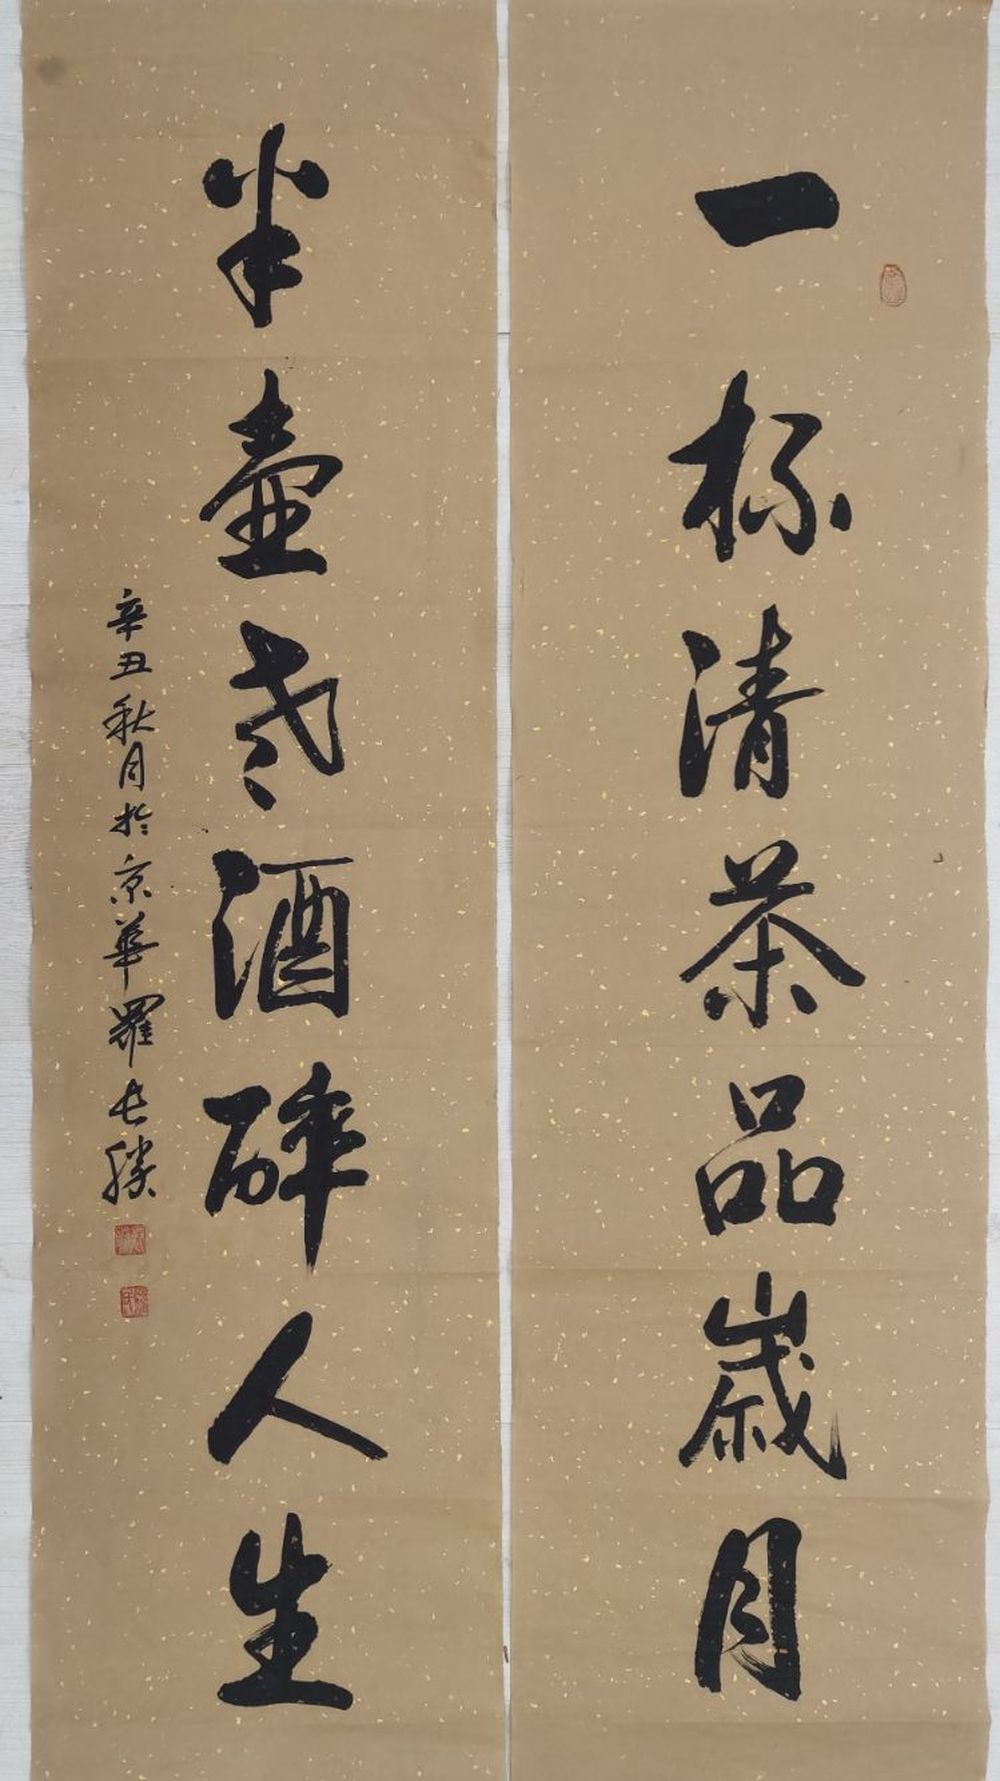 一杯清茶品歲月
半壺老酒醉人生
辛丑秋月於京華羅長勝